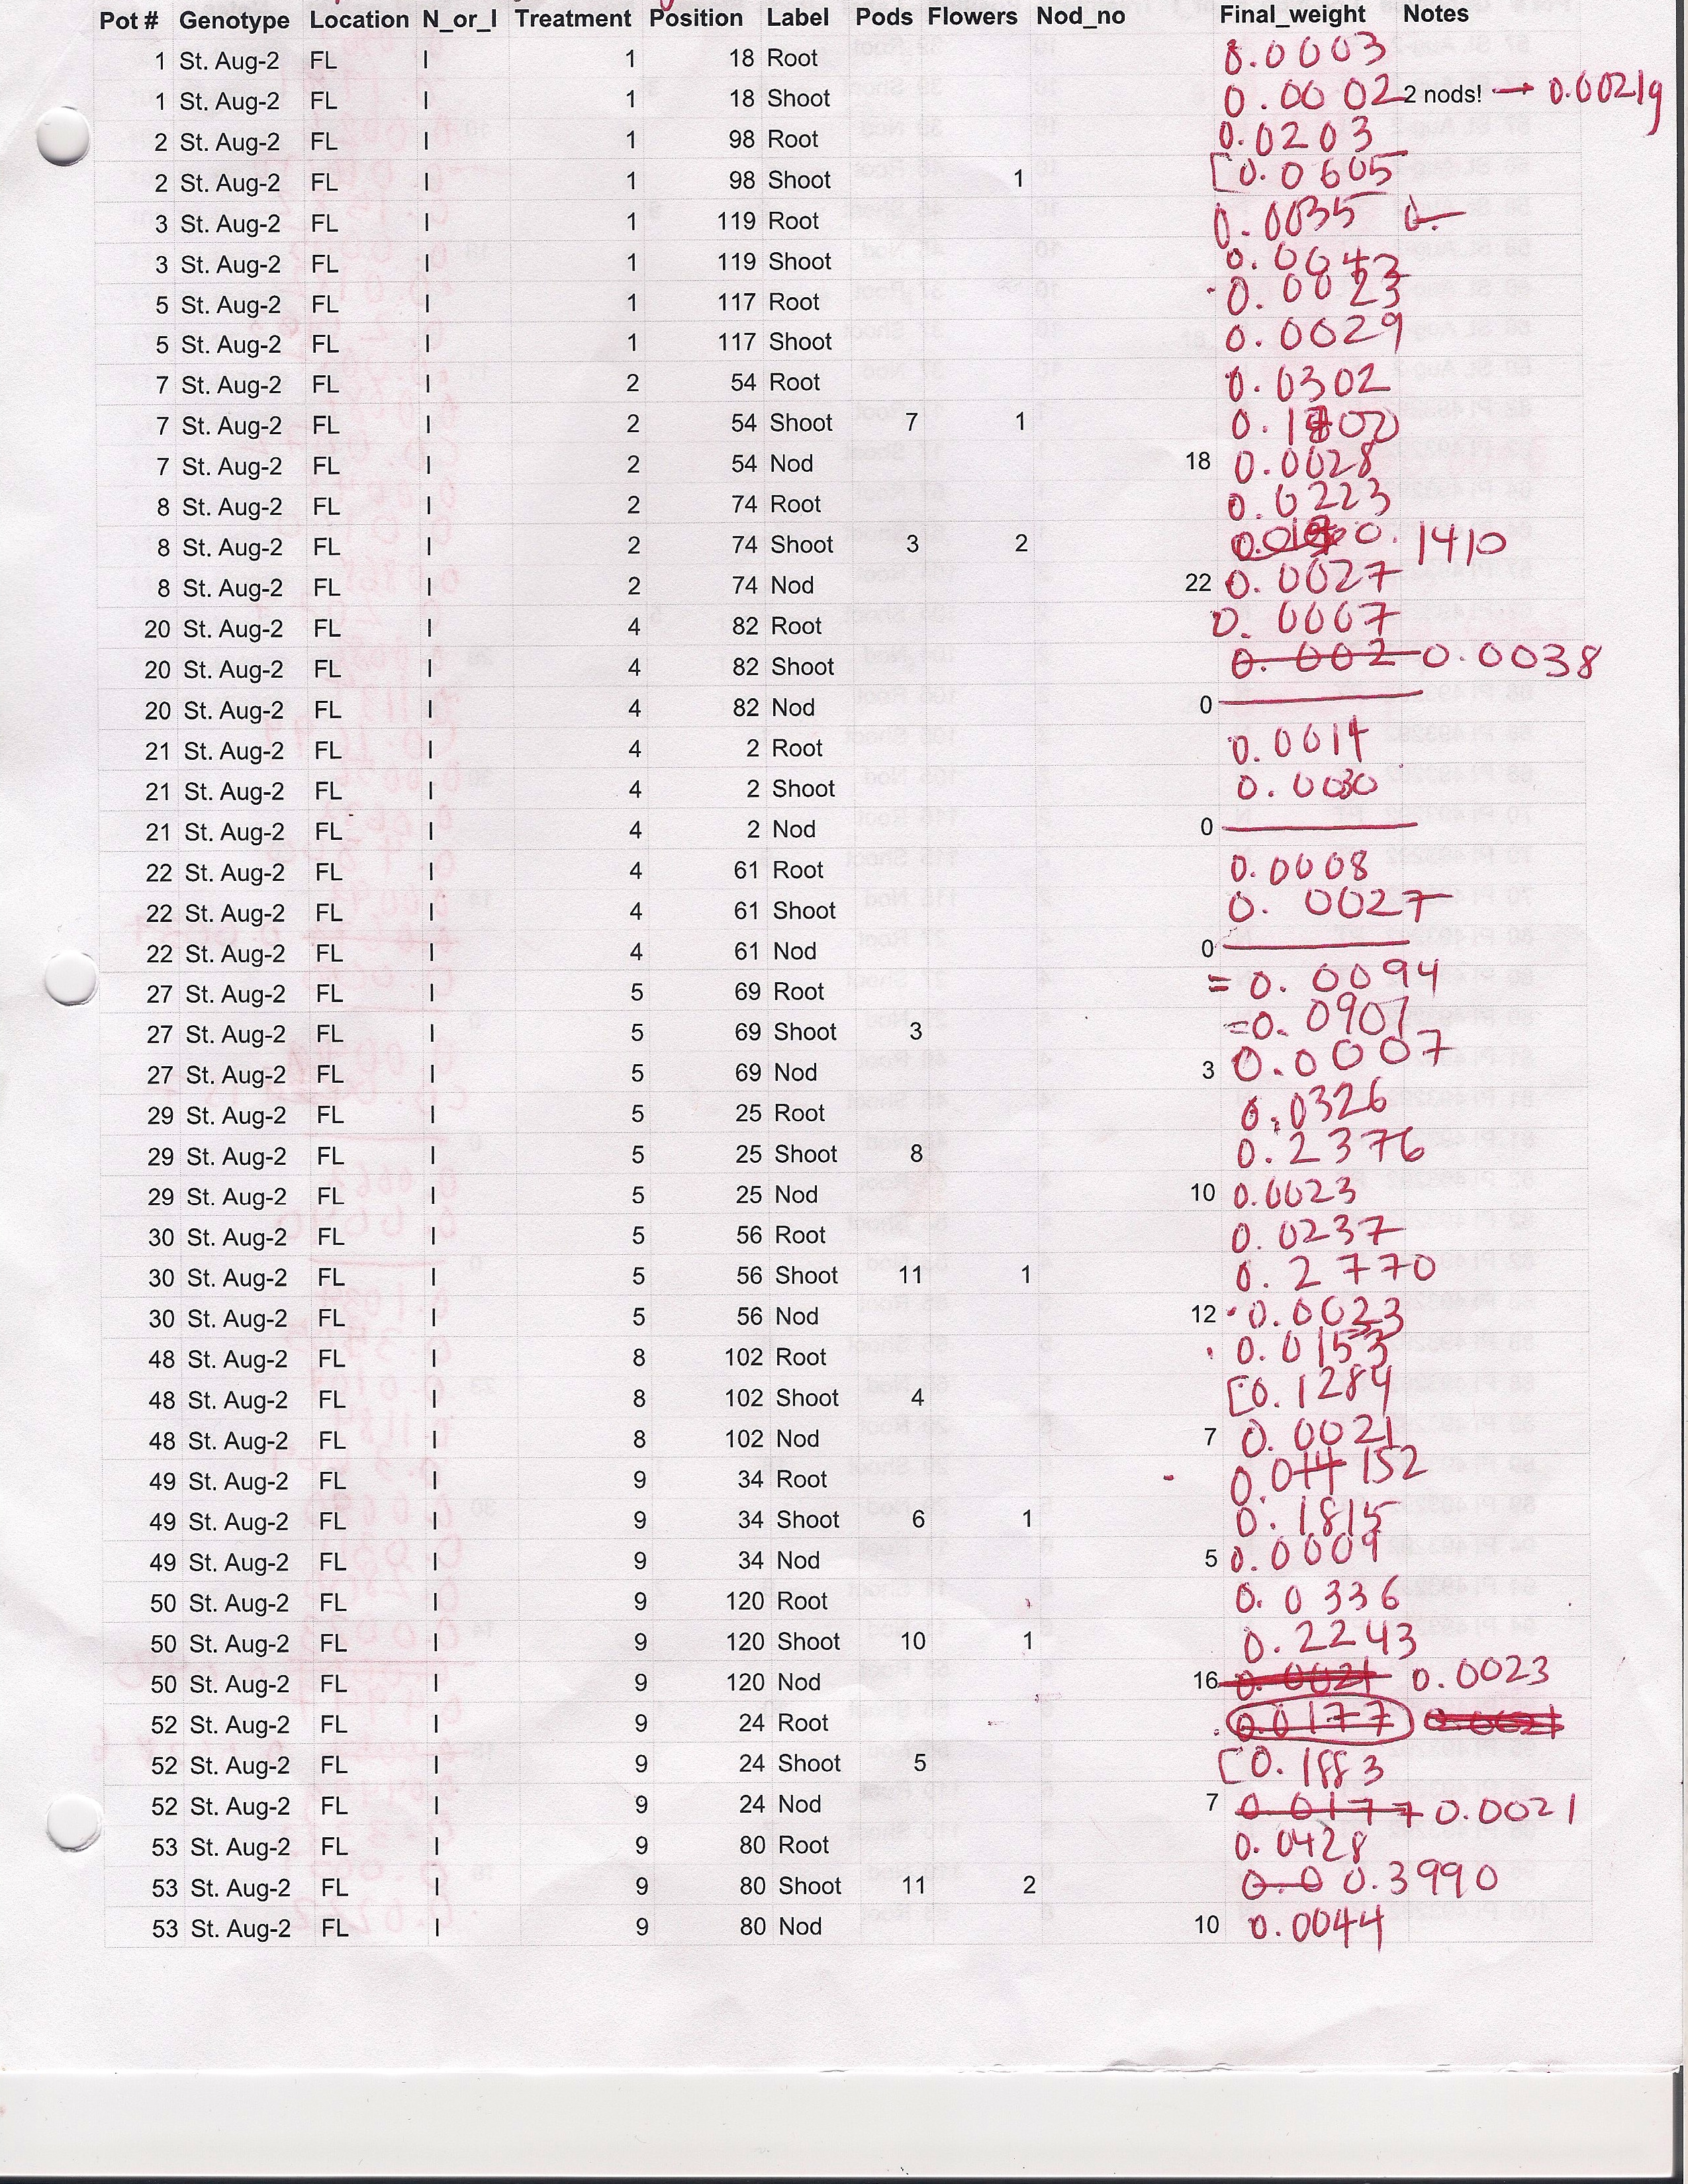 Pot # Genotype Location N_or_I Treatment Position Label Pods Flowers Nod_no Final_weight Notes
1 St. Aug-2 FL I 1 18 Root 0.0003
1 St. Aug-2 FL I 1 18 Shoot 0.0002 2 nods! → 0.0021g
2 St. Aug-2 FL I 1 98 Root 0.0203
2 St. Aug-2 FL I 1 98 Shoot 1 [0.0605
3 St. Aug-2 FL I 1 119 Root 0.0035 0.
3 St. Aug-2 FL I 1 119 Shoot 0.0043
5 St. Aug-2 FL I 1 117 Root 0.0023
5 St. Aug-2 FL I 1 117 Shoot 0.0029
7 St. Aug-2 FL I 2 54 Root 0.0302
7 St. Aug-2 FL I 2 54 Shoot 7 1
7 St. Aug-2 FL I 2 54 Nod 18 0.0028
8 St. Aug-2 FL I 2 74 Root 0.0223
8 St. Aug-2 FL I 2 74 Shoot 3 2 0.1410
8 St. Aug-2 FL I 2 74 Nod 22 0.0027
20 St. Aug-2 FL I 4 82 Root 0.0007
20 St. Aug-2 FL I 4 82 Shoot 0.002 0.0038
20 St. Aug-2 FL I 4 82 Nod 0
21 St. Aug-2 FL I 4 2 Root 0.0014
21 St. Aug-2 FL I 4 2 Shoot 0.0030
21 St. Aug-2 FL I 4 2 Nod 0
22 St. Aug-2 FL I 4 61 Root 0.0008
22 St. Aug-2 FL I 4 61 Shoot 0.0027
22 St. Aug-2 FL I 4 61 Nod 0
27 St. Aug-2 FL I 5 69 Root = 0.0094
27 St. Aug-2 FL I 5 69 Shoot 3 =0.0901
27 St. Aug-2 FL I 5 69 Nod 3 0.0007
29 St. Aug-2 FL I 5 25 Root 0.0326
29 St. Aug-2 FL I 5 25 Shoot 8 0.2376
29 St. Aug-2 FL I 5 25 Nod 10 0.0023
30 St. Aug-2 FL I 5 56 Root 0.0237
30 St. Aug-2 FL I 5 56 Shoot 11 1 0.2770
30 St. Aug-2 FL I 5 56 Nod 12 0.0023
48 St. Aug-2 FL I 8 102 Root 0.0153
48 St. Aug-2 FL I 8 102 Shoot 4 [0.1284
48 St. Aug-2 FL I 8 102 Nod 7 0.0021
49 St. Aug-2 FL I 9 34 Root 0.014 152
49 St. Aug-2 FL I 9 34 Shoot 6 1 0.1815
49 St. Aug-2 FL I 9 34 Nod 5 0.0009
50 St. Aug-2 FL I 9 120 Root 0.0336
50 St. Aug-2 FL I 9 120 Shoot 10 1 0.2243
50 St. Aug-2 FL I 9 120 Nod 16 0.0021 0.0023
52 St. Aug-2 FL I 9 24 Root 0.0177 0.0021
52 St. Aug-2 FL I 9 24 Shoot 5 [0.1883
52 St. Aug-2 FL I 9 24 Nod 7 0.0177 0.0021
53 St. Aug-2 FL I 9 80 Root 0.0428
53 St. Aug-2 FL I 9 80 Shoot 11 2 0.0 0.3990
53 St. Aug-2 FL I 9 80 Nod 10 0.0044